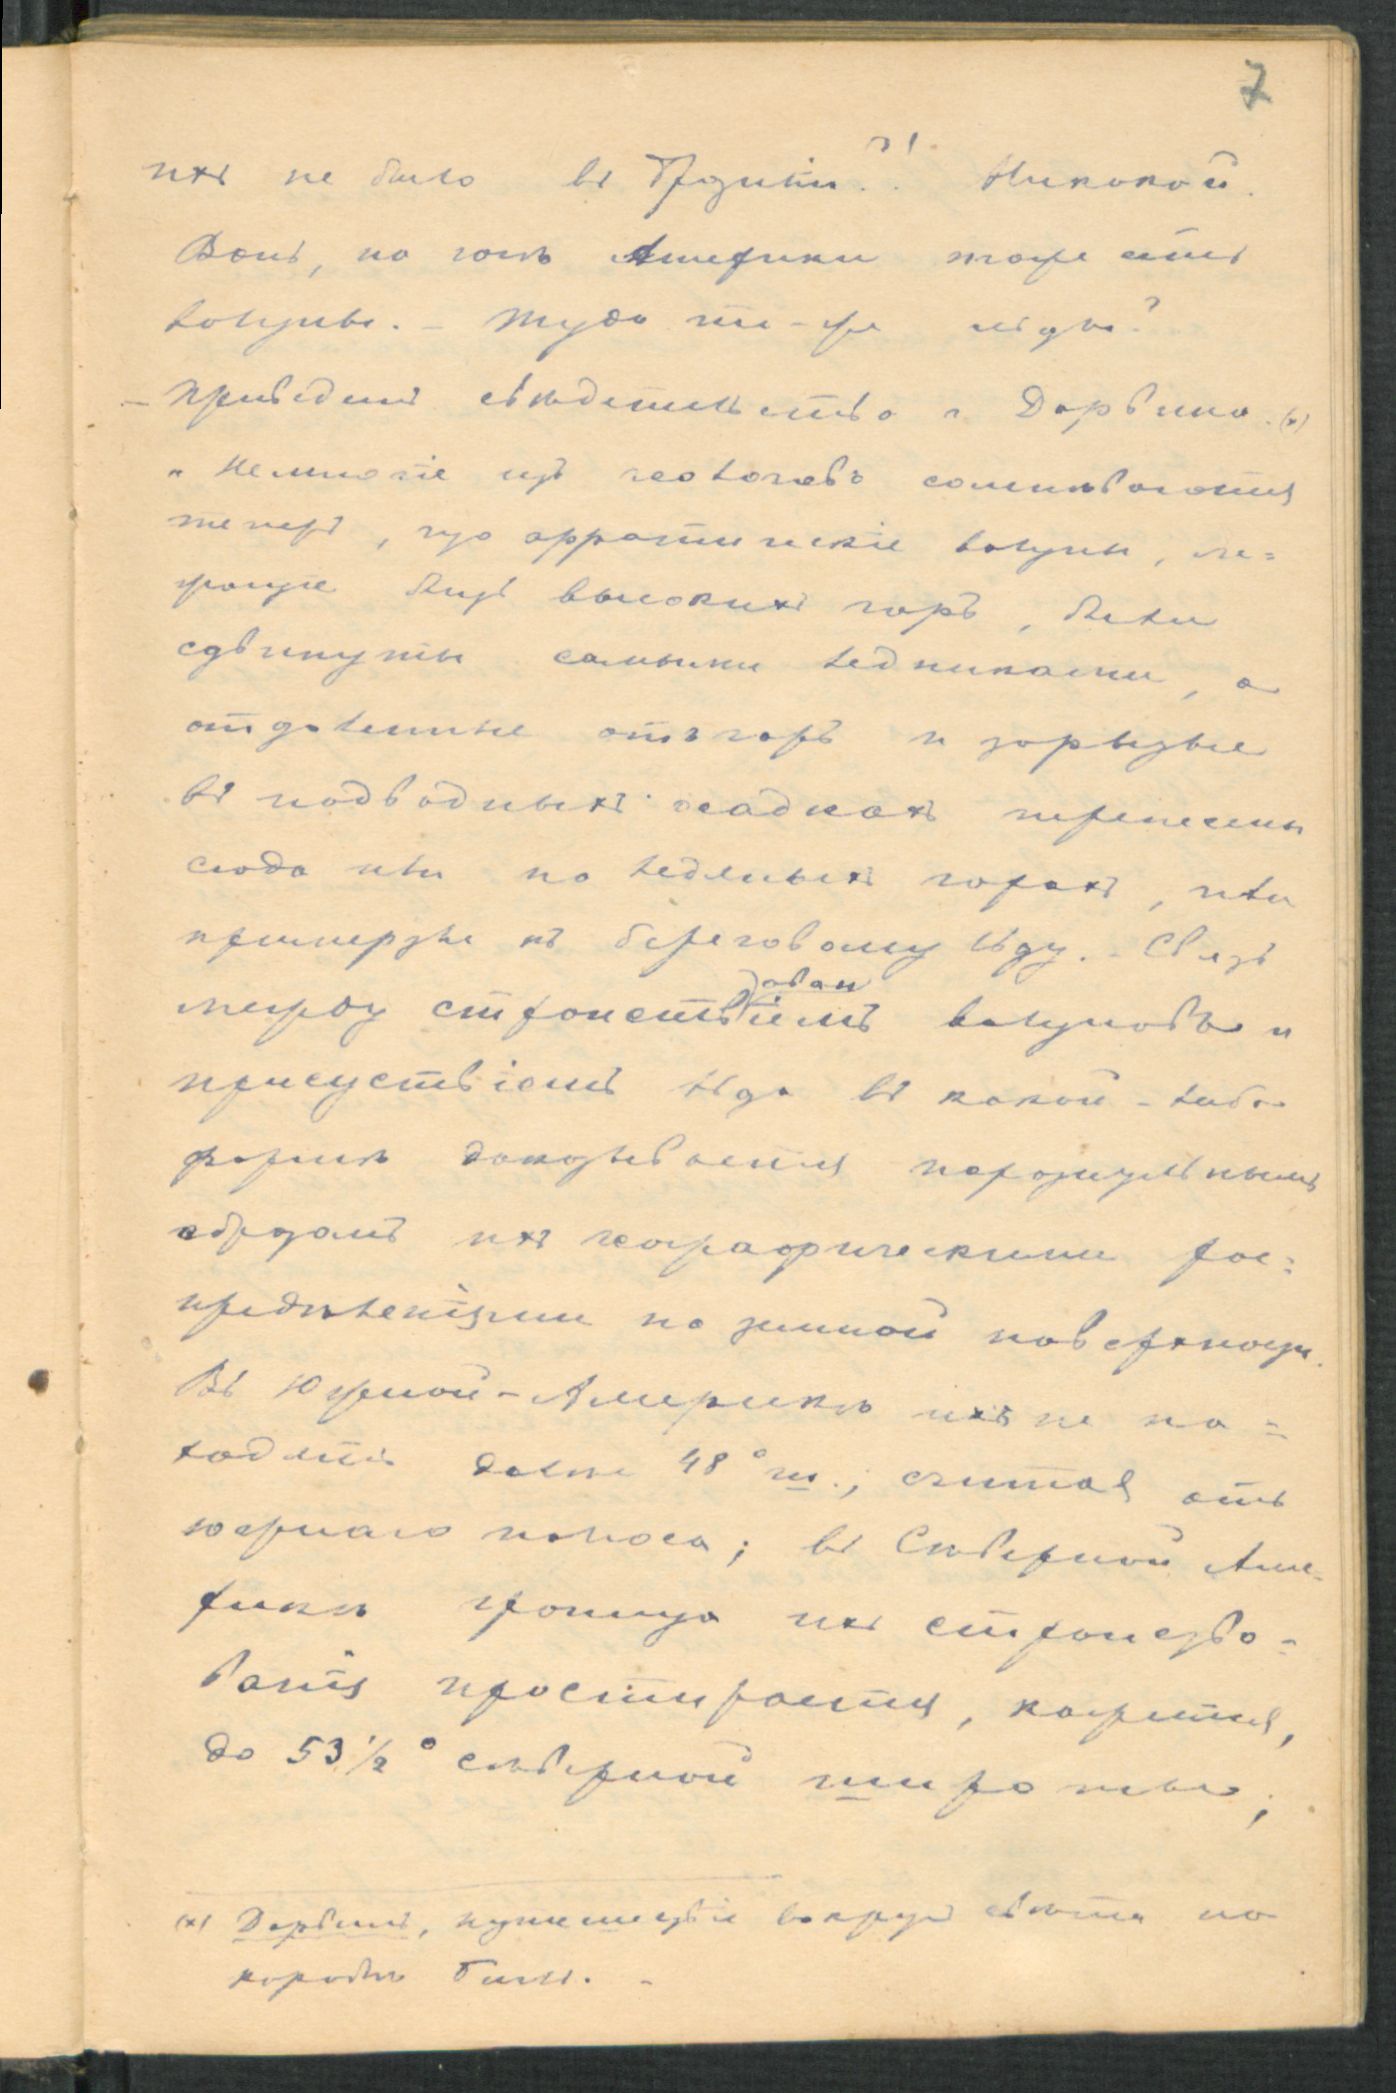 7
ихъ не было въ Бразиліи?! Никакой.
Вонъ, на югѣ Америки тоже есть
валуны. - Туда то-же льды?
- Приведемъ свидѣтельство г. Дарвина. (х)
„Немногіе изъ геологовъ сомнѣваются
теперь, что эрратическіе валуны, ле=
жащіе близъ высокихъ горъ, были
сдвинуты самыми ледниками, а
отдаленные отъ горъ и зарытые
въ подводныхъ осадкахъ перенесены
сюда или на ледяныхъ горахъ, или
примерзли къ береговому льду. - Связь
между странствованіемъ валуновъ и
присуствіемъ льда въ какой-либо
формѣ доказывается поразительнымъ
образомъ ихъ географическими рас=
предѣленіями по земной поверхности.
Въ Южной-Америкѣ ихъ не на=
ходятъ далѣе 48° ш., считая отъ
южнаго полюса; въ Сѣверной Аме=
рикѣ граница ихъ странство=
ванія простирается, кажется,
до 53 1/2° сѣверной широты;
(х) Дарвинъ, путешествіе вокругъ свѣта на
кораблѣ Бигль. -